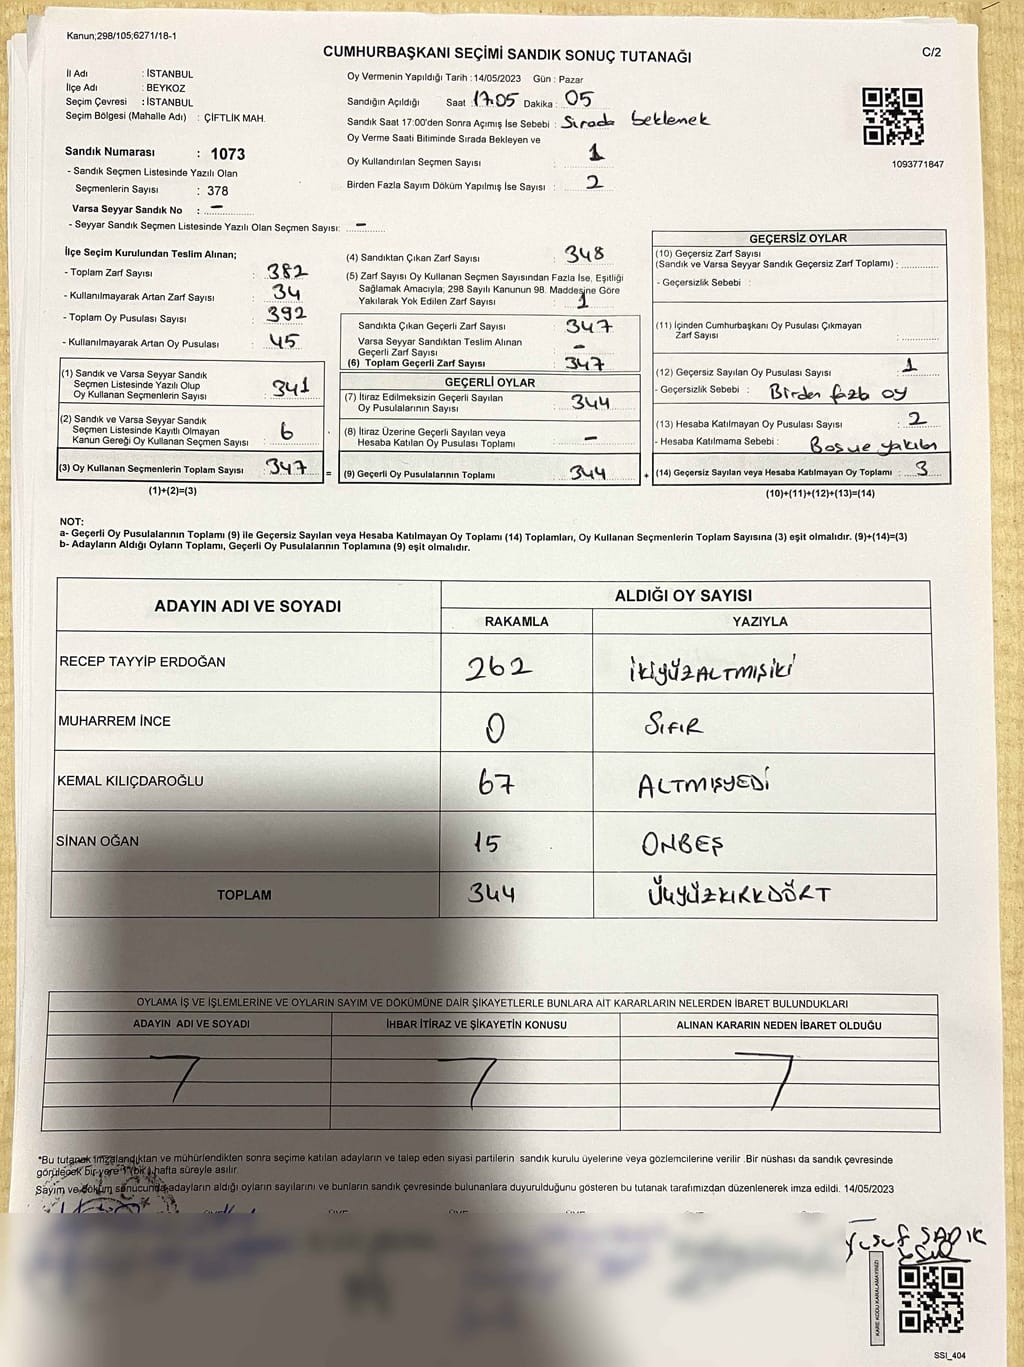 Kanun;298/105;6271/18-1
CUMHURBAŞKANI SEÇİMİ SANDIK SONUÇ TUTANAĞI
C/2
İl Adı : İSTANBUL
İlçe Adı : BEYKOZ
Seçim Çevresi : İSTANBUL
Seçim Bölgesi (Mahalle Adı) : ÇİFTLİK MAH.
Sandık Numarası : 1073
- Sandık Seçmen Listesinde Yazılı Olan
Seçmenlerin Sayısı : 378
Varsa Seyyar Sandık No : -
- Seyyar Sandık Seçmen Listesinde Yazılı Olan Seçmen Sayısı: -
Oy Vermenin Yapıldığı Tarih : 14/05/2023 Gün : Pazar
Sandığın Açıldığı Saat 17:05 Dakika : 05
Sandık Saat 17:00'den Sonra Açımış İse Sebebi : Sırada beklemek
Oy Verme Saati Bitiminde Sırada Bekleyen ve
Oy Kullandırılan Seçmen Sayısı : 1
Birden Fazla Sayım Döküm Yapılmış İse Sayısı : 2
1093771847
İlçe Seçim Kurulundan Teslim Alınan;
- Toplam Zarf Sayısı : 382
- Kullanılmayarak Artan Zarf Sayısı : 34
- Toplam Oy Pusulası Sayısı : 392
- Kullanılmayarak Artan Oy Pusulası : 45
(1) Sandık ve Varsa Seyyar Sandık
Seçmen Listesinde Yazılı Olup
Oy Kullanan Seçmenlerin Sayısı : 341
(2) Sandık ve Varsa Seyyar Sandık
Seçmen Listesinde Kayıtlı Olmayan
Kanun Gereği Oy Kullanan Seçmen Sayısı : 6
(3) Oy Kullanan Seçmenlerin Toplam Sayısı : 347 =
(1)+(2)=(3)
(4) Sandıktan Çıkan Zarf Sayısı : 348
(5) Zarf Sayısı Oy Kullanan Seçmen Sayısından Fazla İse, Eşitliği
Sağlamak Amacıyla; 298 Sayılı Kanunun 98. Maddesine Göre
Yakılarak Yok Edilen Zarf Sayısı : 1
Sandıkta Çıkan Geçerli Zarf Sayısı : 347
Varsa Seyyar Sandıktan Teslim Alınan
Geçerli Zarf Sayısı : -
(6) Toplam Geçerli Zarf Sayısı : 347
GEÇERLİ OYLAR
(7) İtiraz Edilmeksizin Geçerli Sayılan
Oy Pusulalarının Sayısı : 344
(8) İtiraz Üzerine Geçerli Sayılan veya
Hesaba Katılan Oy Pusulası Toplamı : -
(9) Geçerli Oy Pusulalarının Toplamı : 344 +
GEÇERSİZ OYLAR
(10) Geçersiz Zarf Sayısı
(Sandık ve Varsa Seyyar Sandık Geçersiz Zarf Toplamı) :
- Geçersizlik Sebebi :
(11) İçinden Cumhurbaşkanı Oy Pusulası Çıkmayan
Zarf Sayısı :
(12) Geçersiz Sayılan Oy Pusulası Sayısı : 1
- Geçersizlik Sebebi : Birden fazla oy
(13) Hesaba Katılmayan Oy Pusulası Sayısı : 2
- Hesaba Katılmama Sebebi :
(14) Geçersiz Sayılan veya Hesaba Katılmayan Oy Toplamı : 3
(10)+(11)+(12)+(13)=(14)
NOT:
a- Geçerli Oy Pusulalarının Toplamı (9) ile Geçersiz Sayılan veya Hesaba Katılmayan Oy Toplamı (14) Toplamları, Oy Kullanan Seçmenlerin Toplam Sayısına (3) eşit olmalıdır. (9)+(14)=(3)
b- Adayların Aldığı Oyların Toplamı, Geçerli Oy Pusulalarının Toplamına (9) eşit olmalıdır.
ADAYIN ADI VE SOYADI
ALDIĞI OY SAYISI
RAKAMLA YAZIYLA
RECEP TAYYİP ERDOĞAN 262 İKİYÜZALTMIŞİKİ
MUHARREM İNCE 0 SIFIR
KEMAL KILIÇDAROĞLU 67 ALTMIŞYEDİ
SİNAN OĞAN 15 ONBEŞ
TOPLAM 344 ÜÇYÜZKIRKDÖRT
OYLAMA İŞ VE İŞLEMLERİNE VE OYLARIN SAYIM VE DÖKÜMÜNE DAİR ŞİKAYETLERLE BUNLARA AİT KARARLARIN NELERDEN İBARET BULUNDUKLARI
ADAYIN ADI VE SOYADI İHBAR İTİRAZ VE ŞİKAYETİN KONUSU ALINAN KARARIN NEDEN İBARET OLDUĞU
*Bu tutanak imzalandıktan ve mühürlendikten sonra seçime katılan adayların ve talep eden siyasi partilerin sandık kurulu üyelerine veya gözlemcilerine verilir .Bir nüshası da sandık çevresinde
görülecek bir yere 1 (bir) hafta süreyle asılır.
Sayım ve döküm sonucunda adayların aldığı oyların sayılarını ve bunların sandık çevresinde bulunanlara duyurulduğunu gösteren bu tutanak tarafımızdan düzenlenerek imza edildi. 14/05/2023
Yusuf SADIK
KARE KODU KARALAMAYINIZ!
SSI_404